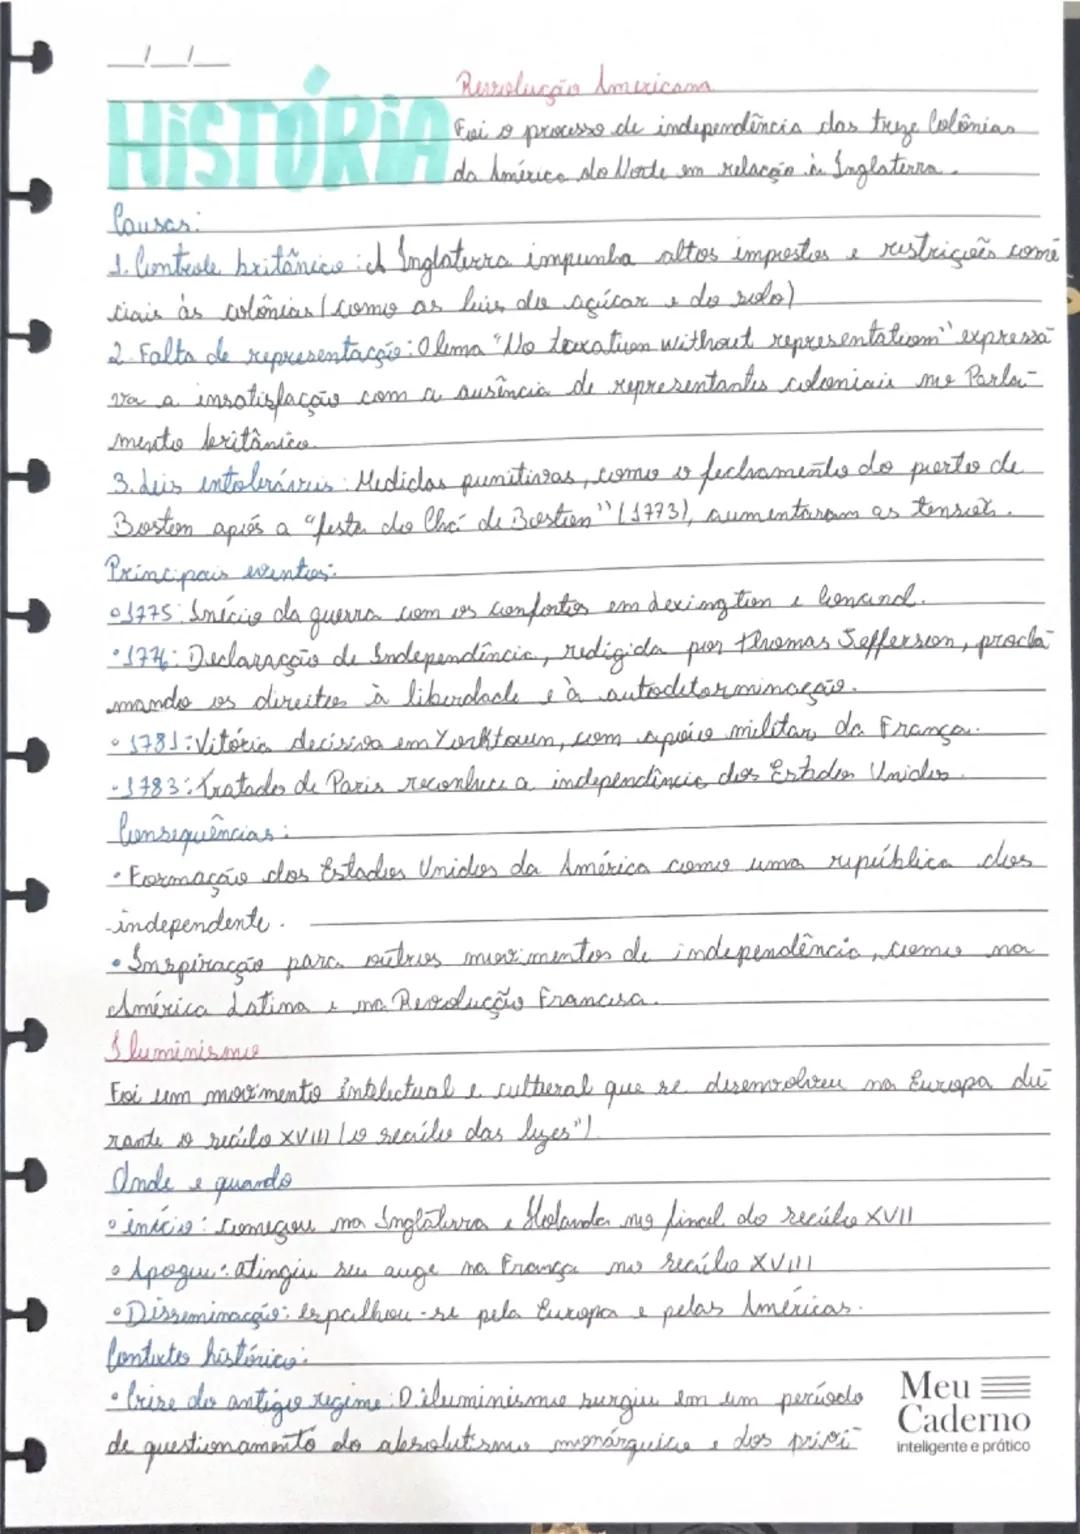 __/__/__
Revolução Americana
HISTÓRIA
Foi o processo de independência das treze Colônias
da América do Norte em relação à Inglaterra.
Causas:
1. Controle britânico: A Inglaterra impunha altos impostos e restrições comé
ciais às colônias (como as leis do açúcar e do selo)
2. Falta de representação: O lema "No taxation without representation" expressa
va a insatisfação com a ausência de representantes coloniais no Parla-
mento britânico.
3. Leis intoleráveis: Medidas punitivas, como o fechamento do porto de
Boston após a "festa do Chá de Boston" (1773), aumentaram as tensões.
Principais eventos:
• 1775: Início da guerra com os confortos em Lexington e Concord.
• 1776: Declaração de Independência, redigida por Thomas Jefferson, procla-
mando os direitos à liberdade e à autodeterminação.
• 1781: Vitória decisiva em Yorktown, com apoio militar da França.
• 1783: Tratados de Paris reconhece a independência dos Estados Unidos.
Consequências:
• Formação dos Estados Unidos da América como uma república dos
independente.
• Inspiração para outros movimentos de independência, como na
América Latina e na Revolução Francesa.
Iluminismo
Foi um movimento intelectual e cultural que se desenvolveu na Europa du-
rante o século XVIII (o século das luzes").
Onde e quando
• início: começou na Inglaterra e Holanda no final do século XVII
• Apogeu: atingiu seu auge na França no século XVIII
• Disseminação: espalhou-se pela Europa e pelas Américas.
Contexto histórico:
• Crise do antigo regime: O iluminismo surgiu em um período
de questionamento do absolutismo monárquico e dos privi-
Meu
Caderno
inteligente e prático